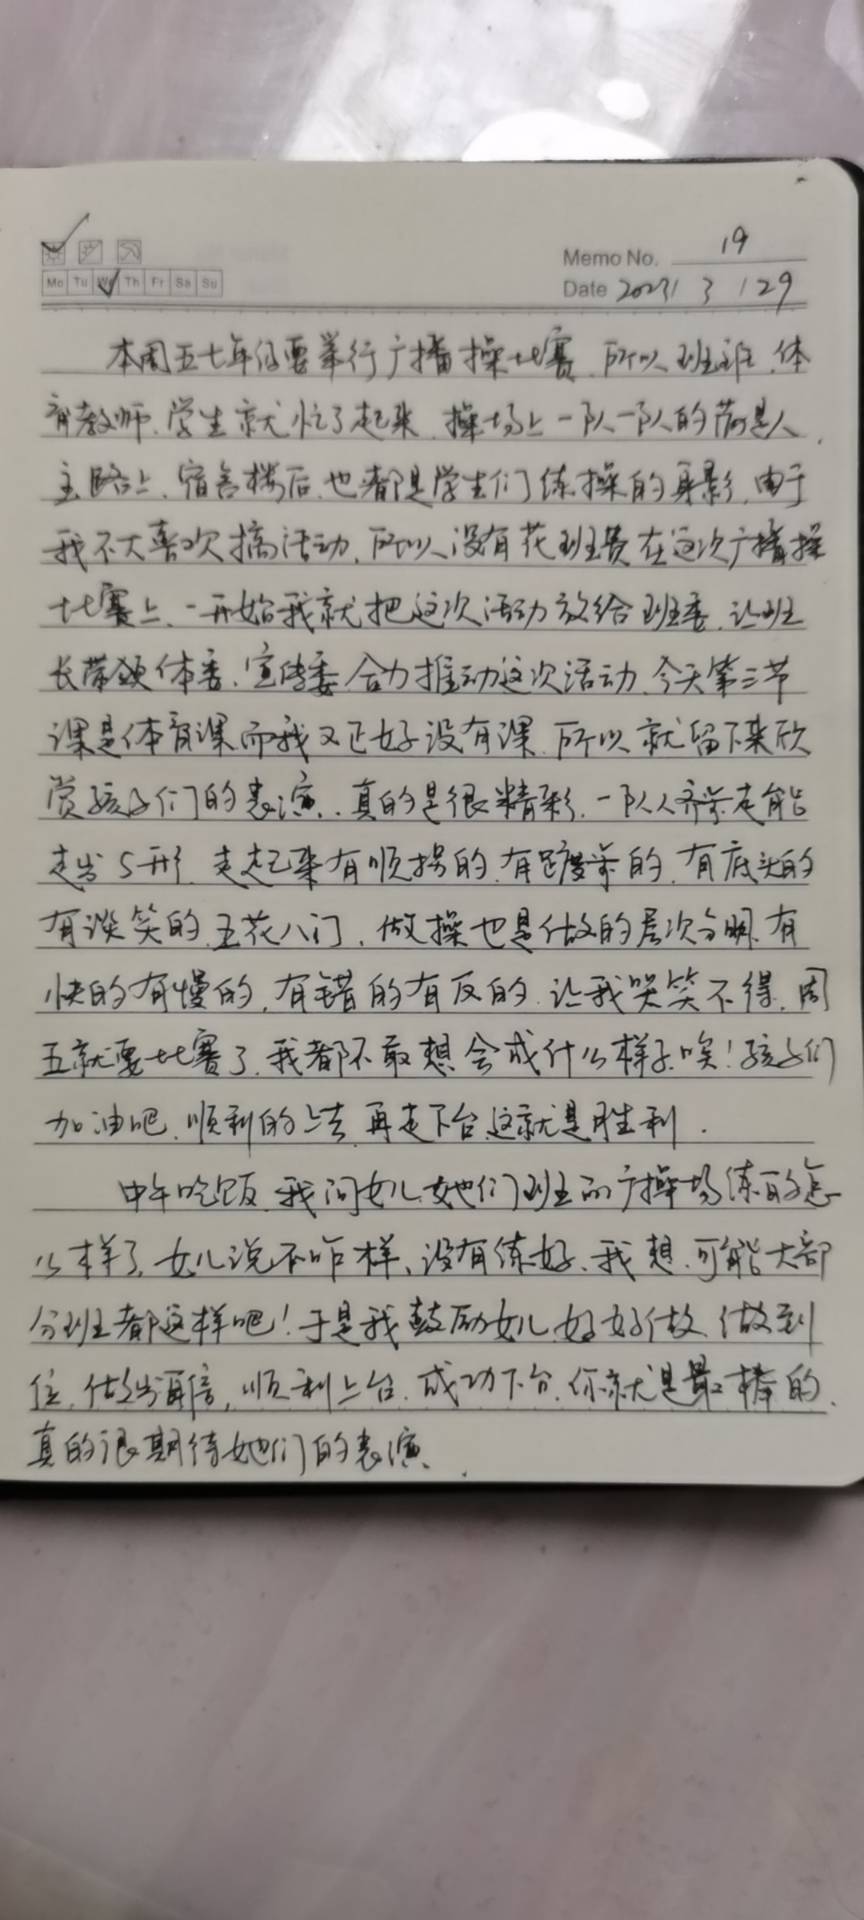 Memo No. 19
Mo Tu We Th Fr Sa Su
Date 2023 / 3 / 29
本周五七年级要举行广播操比赛,所以班主任、体
育教师、学生就忙了起来,操场上一队一队的满是人,
主路上、宿舍楼后也都是学生们练操的身影,由于
我不大喜欢搞活动,所以没有花班费在这次广播操
比赛上,一开始我就把这次活动放给班委,让班
长带领体委、宣传委合力推动这次活动,今天第三节
课是体育课而我又正好没有课,所以就留下来欣
赏孩子们的表演,真的是很精彩,一队人齐步走能
走出S形,走起来有顺拐的,有踮脚的,有底头的
有谈笑的,五花八门,做操也是做的层次分明,有
快的有慢的,有错的有反的,让我哭笑不得,周
五就要比赛了,我都不敢想会成什么样子,唉!孩子们
加油吧,顺利的上去再走下台,这就是胜利.
中午吃饭,我问女儿,她们班的广操场练的怎
么样了,女儿说不咋样,没有练好,我想,可能大部
分班都这样吧!于是我鼓励女儿,好好做,做到
位,做出自信,顺利上台,成功下台,你就是最棒的,
真的很期待她们的表演、